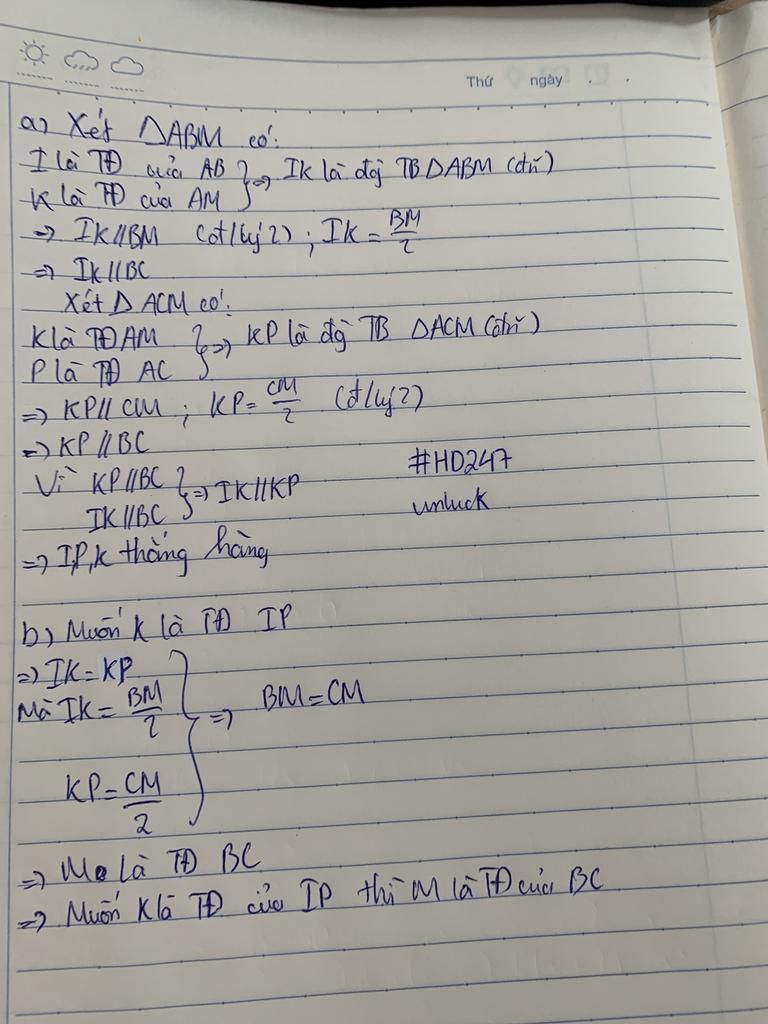 Thứ ngày . .
a) Xét ΔABM có:
I là TĐ của AB } => IK là đg TB ΔABM (đ/n)
K là TĐ của AM
=> IK//BM (đ/lý 2) ; IK = BM/2
=> IK//BC
Xét Δ ACM có:
K là TĐ AM } => KP là đg TB ΔACM (đ/n)
P là TĐ AC
=> KP // CM ; KP = CM/2 (đ/lý 2)
=> KP // BC
Vì KP//BC } => IK//KP
IK//BC
#HD247
unluck
=> I,P,K thẳng hàng
b) Muốn K là TĐ IP
=> IK = KP
Mà IK = BM/2 } => BM = CM
KP = CM/2
=> M là TĐ BC
=> Muốn K là TĐ của IP thì M là TĐ của BC